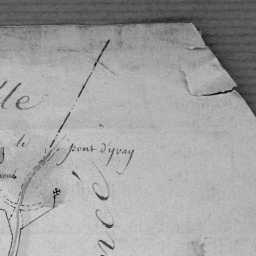 lle
le
pont d'yvay
ncé